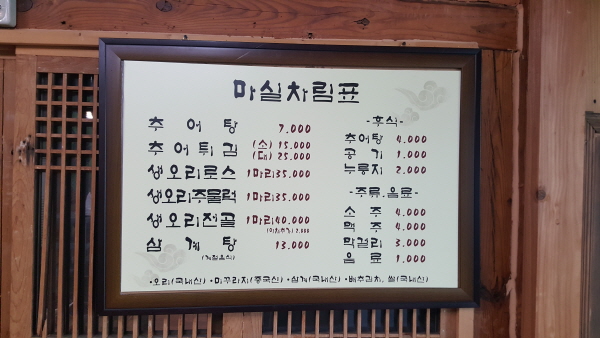 마실차림표
추어탕 7.000
추어튀김 (소) 15.000
(대) 25.000
생오리로스 1마리35.000
생오리주물럭 1마리35.000
생오리전골 1마리40.000
삼계탕 13.000
(계절음식)
-후식-
추어탕 4.000
공기 1.000
누룽지 2.000
-주류.음료-
소주 4.000
맥주 4.000
막걸리 3.000
음료 1.000
•오리(국내산) •미꾸라지(중국산) •삼계(국내산) •배추김치, 쌀(국내산)